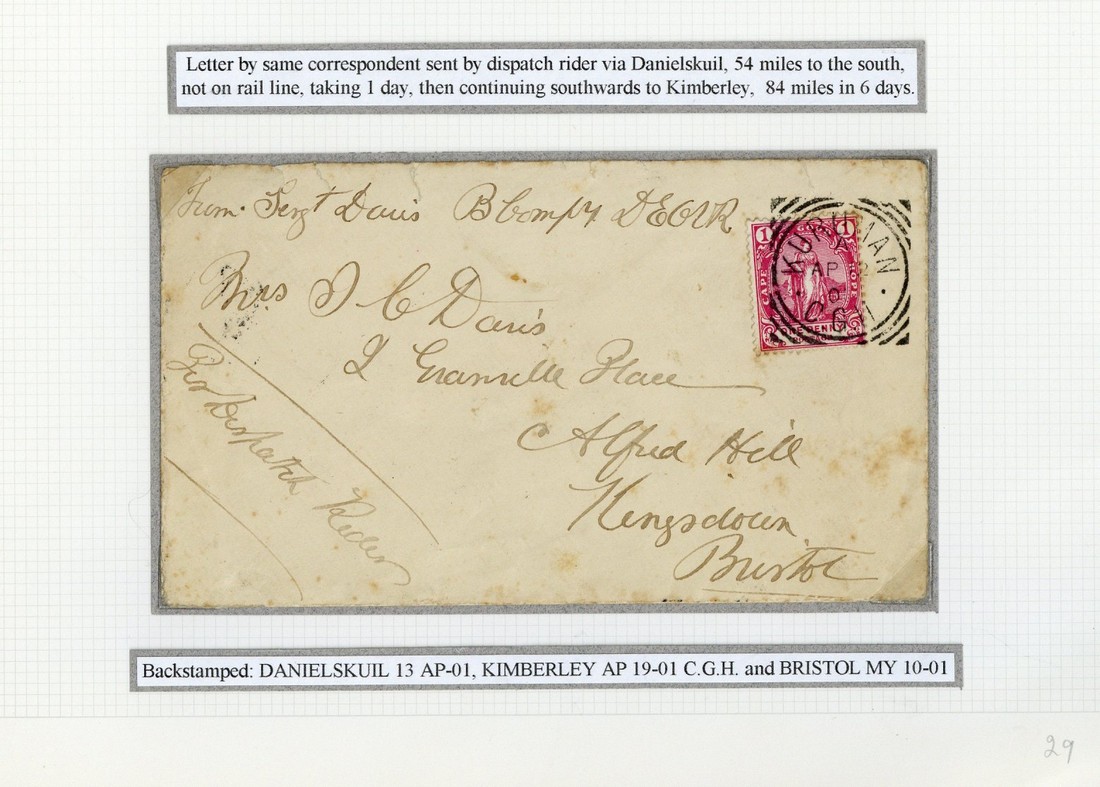 Letter by same correspondent sent by dispatch rider via Danielskuil, 54 miles to the south,
not on rail line, taking 1 day, then continuing southwards to Kimberley, 84 miles in 6 days.
From Sergt Davis B Compy DEOVR
1 1
CAPE HOPE
ONE PENNY
KURUMAN
AP
Mrs J C Davis
2 Granville Place
Alfred Hill
Kingsdown
Bristol
Per Dispatch Rider
Backstamped: DANIELSKUIL 13 AP-01, KIMBERLEY AP 19-01 C.G.H. and BRISTOL MY 10-01
29